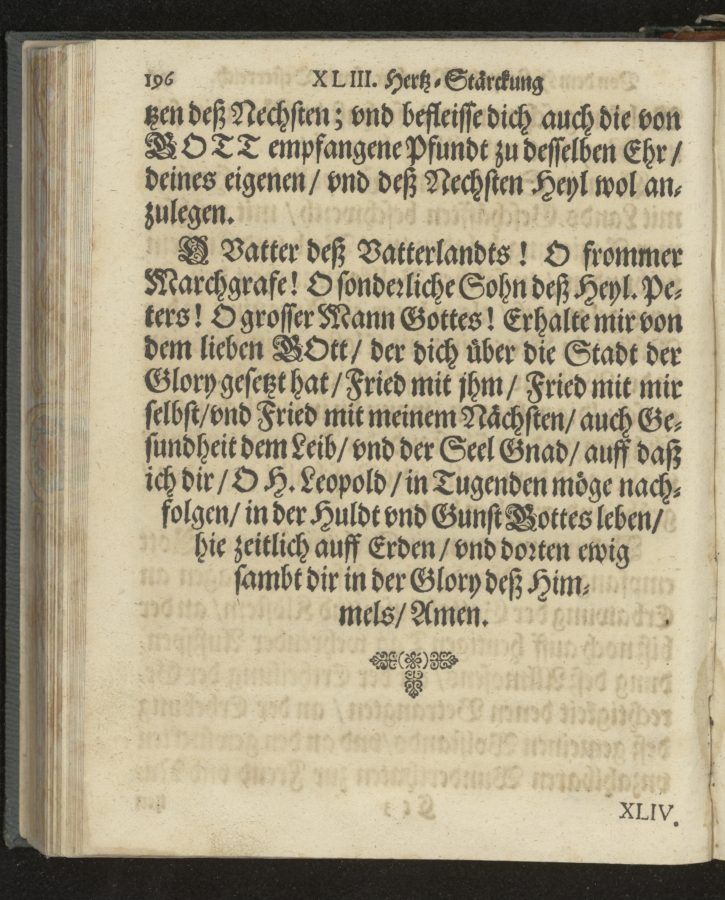 196 XLIII. Hertz-Stärckung
tzen deß Nechsten; vnd befleisse dich auch die von
GOTT empfangene Pfundt zu desselben Ehr /
deines eigenen / vnd deß Nechsten Heyl wol an-
zulegen.
O Vatter deß Vatterlandts! O frommer
Marchgrafe! O sonderliche Sohn deß Heyl. Pe-
ters! O grosser Mann Gottes! Erhalte mir von
dem lieben GOtt / der dich über die Stadt der
Glory gesetzt hat / Fried mit jhm / Fried mit mir
selbst/vnd Fried mit meinem Nächsten/ auch Ge-
sundheit dem Leib/ vnd der Seel Gnad/ auff daß
ich dir / O H. Leopold / in Tugenden möge nach-
folgen/ in der Huldt vnd Gunst Gottes leben/
hie zeitlich auff Erden / vnd dorten ewig
sambt dir in der Glory deß Him-
mels/ Amen.
XLIV.